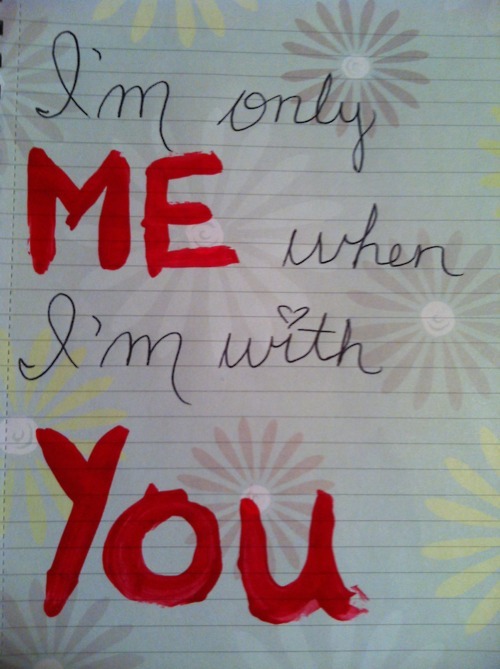 I'm only
ME when
I'm with
YOU